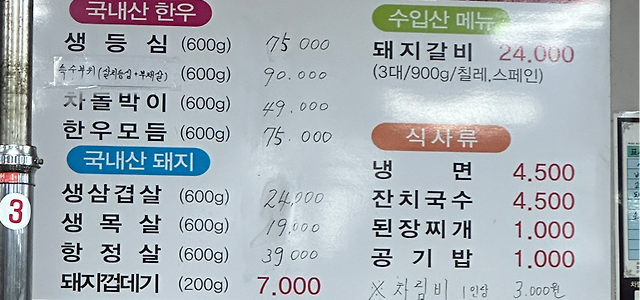 국내산 한우
생등심 (600g) 75.000
특수부위 (살치등심+부채살) (600g) 90.000
차돌박이 (600g) 49.000
한우모듬 (600g) 75.000
국내산 돼지
생삼겹살 (600g) 24,000
생목살 (600g) 19,000
항정살 (600g) 39000
돼지껍데기 (200g) 7.000
수입산 메뉴
돼지갈비 24.000
(3대/900g/칠레,스페인)
식사류
냉면 4.500
잔치국수 4.500
된장찌개 1.000
공기밥 1.000
※ 차림비 1인상 3.000원
3